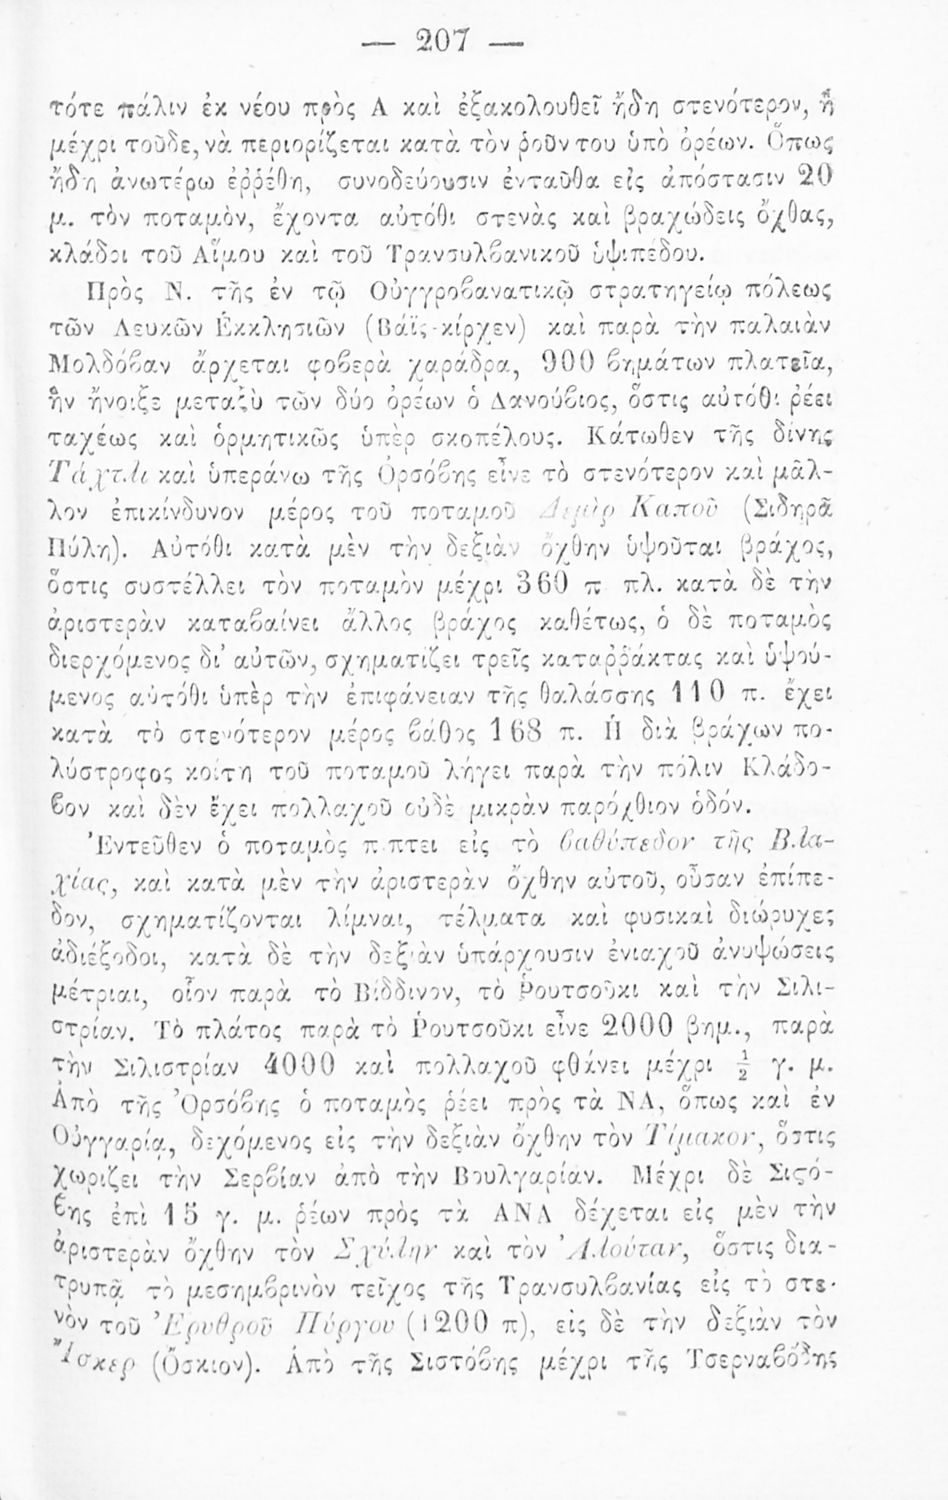 — 207 —
τότε πάλιν ἐκ νέου πρὸς Α καὶ ἐξακολουθεῖ ἤδη στενότερον, ἢ
μέχρι τοῦδε, νὰ περιορίζεται κατὰ τὸν ῥοῦν του ὑπὸ ὀρέων. Ὅπως
ἤδη ἀνωτέρω ἐῤῥέθη, συνοδεύουσιν ἐνταῦθα εἰς ἀπόστασιν 20
μ. τὸν ποταμὸν, ἔχοντα αὐτόθι στενὰς καὶ βραχώδεις ὄχθας,
κλάδοι τοῦ Αἵμου καὶ τοῦ Τρανσυλβανικοῦ ὑψιπέδου.
Πρὸς Ν. τῆς ἐν τῷ Οὐγγροβανατικῷ στρατηγείῳ πόλεως
τῶν Λευκῶν Ἐκκλησιῶν (Βάϊς-κίρχεν) καὶ παρὰ τὴν παλαιὰν
Μολδόβαν ἄρχεται φοβερὰ χαράδρα, 900 βημάτων πλατεῖα,
ἣν ἤνοιξε μεταξὺ τῶν δύο ὀρέων ὁ Δανούβιος, ὅστις αὐτόθι ῥέει
ταχέως καὶ ὁρμητικῶς ὑπὲρ σκοπέλους. Κάτωθεν τῆς δίνης
Τάχτλι καὶ ὑπεράνω τῆς Ὀρσόβης εἶνε τὸ στενότερον καὶ μᾶλ-
λον ἐπικίνδυνον μέρος τοῦ ποταμοῦ Δεμὶρ Καποῦ (Σιδηρᾶ
Πύλη). Αὐτόθι κατὰ μὲν τὴν δεξιὰν ὄχθην ὑψοῦται βράχος,
ὅστις συστέλλει τὸν ποταμὸν μέχρι 360 π πλ. κατὰ δὲ τὴν
ἀριστερὰν καταβαίνει ἄλλος βράχος καθέτως, ὁ δὲ ποταμὸς
διερχόμενος δι’ αὐτῶν, σχηματίζει τρεῖς καταῤῥάκτας καὶ ὑψού-
μενος αὐτόθι ὑπὲρ τὴν ἐπιφάνειαν τῆς θαλάσσης 110 π. ἔχει
κατὰ τὸ στενότερον μέρος βάθος 168 π. Ἡ διὰ βράχων πο-
λύστροφος κοίτη τοῦ ποταμοῦ λήγει παρὰ τὴν πόλιν Κλάδο-
βον καὶ δὲν ἔχει πολλαχοῦ οὐδὲ μικρὰν παρόχθιον ὁδόν.
Ἐντεῦθεν ὁ ποταμὸς πίπτει εἰς τὸ βαθύπεδον τῆς Βλα-
χίας, καὶ κατὰ μὲν τὴν ἀριστερὰν ὄχθην αὐτοῦ, οὖσαν ἐπίπε-
δον, σχηματίζονται λίμναι, τέλματα καὶ φυσικαὶ διώρυχες
ἀδιέξοδοι, κατὰ δὲ τὴν δεξιὰν ὑπάρχουσιν ἐνιαχοῦ ἀνυψώσεις
μέτριαι, οἷον παρὰ τὸ Βίδδινον, τὸ Ῥουτσοῦκι καὶ τὴν Σιλι-
στρίαν. Τὸ πλάτος παρὰ τὸ Ῥουτσοῦκι εἶνε 2000 βημ., παρὰ
τὴν Σιλιστρίαν 4000 καὶ πολλαχοῦ φθάνει μέχρι ½ γ. μ.
Ἀπὸ τῆς Ὀρσόβης ὁ ποταμὸς ῥέει πρὸς τὰ ΝΑ, ὅπως καὶ ἐν
Οὐγγαρίᾳ, δεχόμενος εἰς τὴν δεξιὰν ὄχθην τὸν Τίμακον, ὅστις
χωρίζει τὴν Σερβίαν ἀπὸ τὴν Βουλγαρίαν. Μέχρι δὲ Σιςό-
βης ἐπὶ 15 γ. μ. ῥέων πρὸς τὰ ΑΝΑ δέχεται εἰς μὲν τὴν
ἀριστερὰν ὄχθην τὸν Σχύλην καὶ τὸν Ἀλούταν, ὅστις δια-
τρυπᾷ τὸ μεσημβρινὸν τεῖχος τῆς Τρανσυλβανίας εἰς τὸ στε-
νὸν τοῦ Ἐρυθροῦ Πύργου (1200 π), εἰς δὲ τὴν δεξιὰν τὸν
Ἴσκερ (Ὄσκιον). Ἀπὸ τῆς Σιστόβης μέχρι τῆς Τσερναβόδης